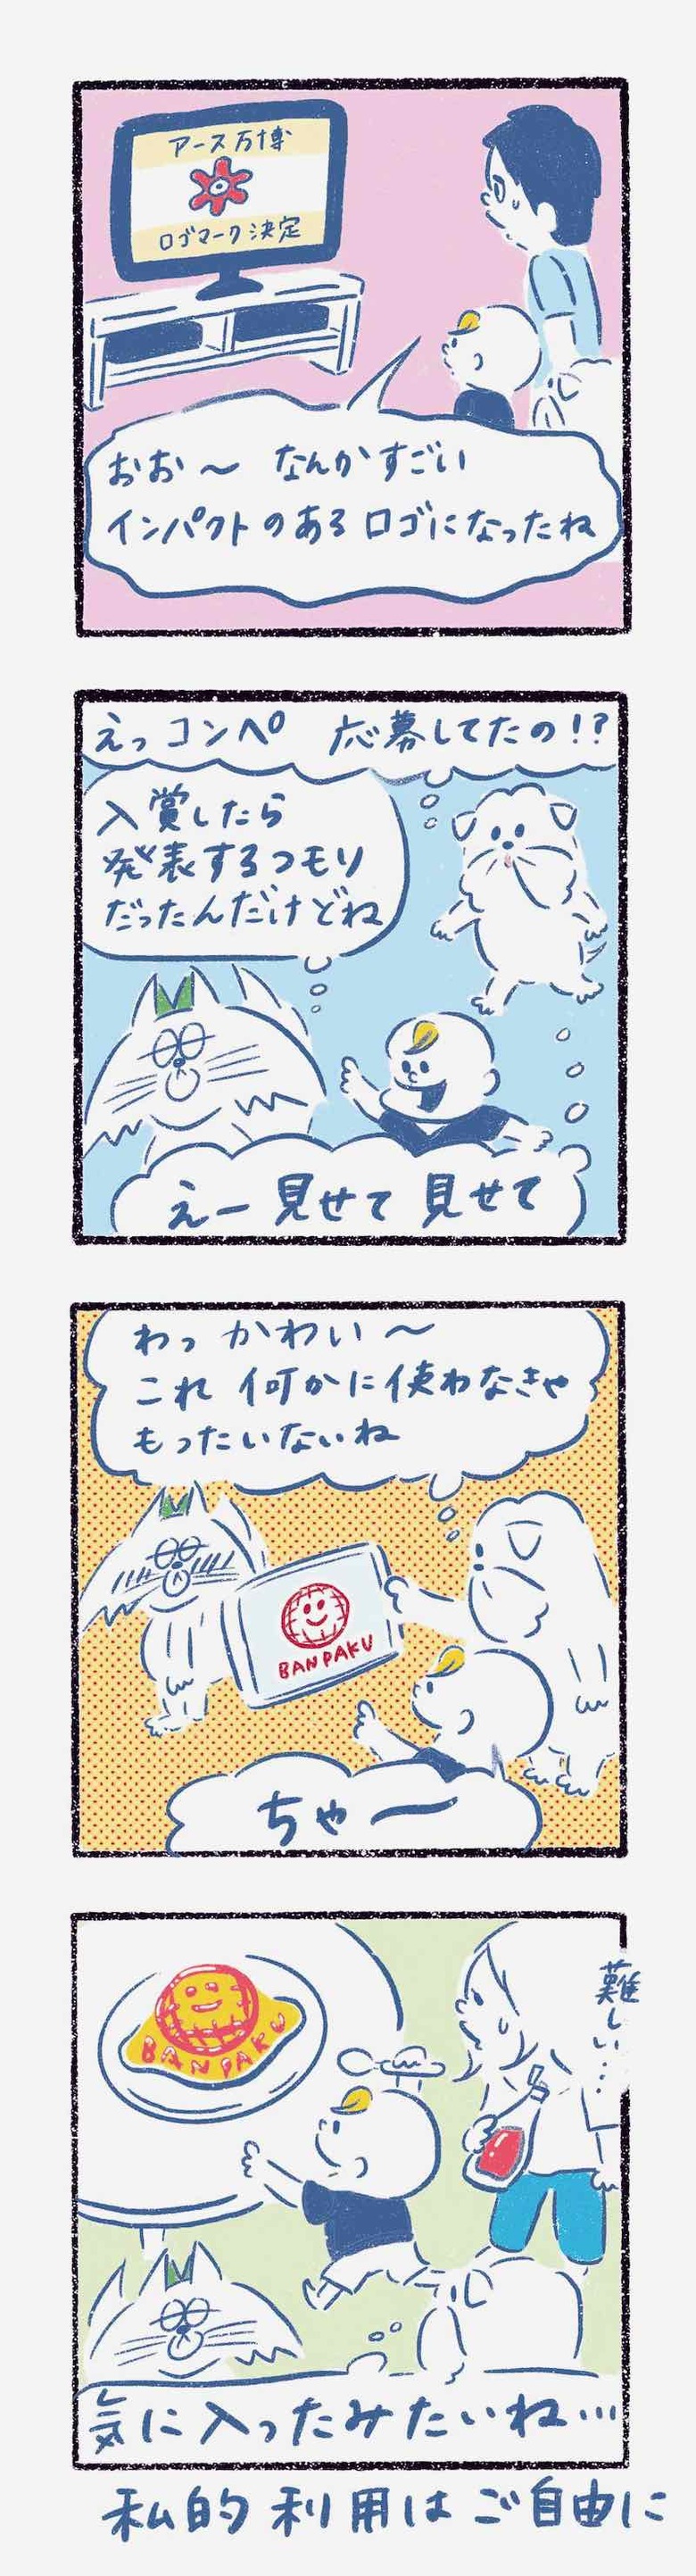 アース万博
ロゴマーク決定
おお〜 なんかすごい
インパクトのあるロゴになったね
えっコンペ 応募してたの!?
入賞したら
発表するつもり
だったんだけどね
えー 見せて 見せて
わっ かわい〜
これ 何かに使わなきゃ
もったいないね
BANPAKU
ちゃ〜
BANPAKU
難しい…
気に入ったみたいね…
私的利用はご自由に